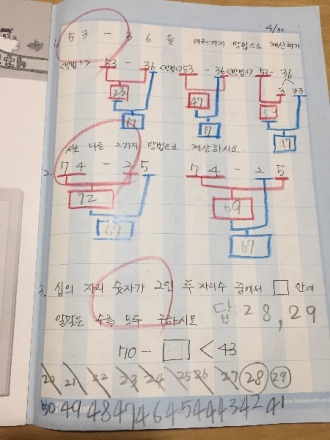 4/30
1. 53 - 36 을 여러가지 방법으로 계산하기
<방법1> 53 - 36 <방법2> 53 - 36 <방법3> 53 - 36
3 33
23 47
17 17 17
서로 다른 2가지 방법으로 계산하시오
2. 74 - 25 74 - 25
72 69
67 67
3. 십의 자리 숫자가 2인 두 자리수 중에서 □ 안에
알맞은 수를 모두 구하시오 답: 28, 29
70 - □ < 43
20 21 22 23 24 25 26 27 28 29
50 49 48 47 46 45 44 43 42 41